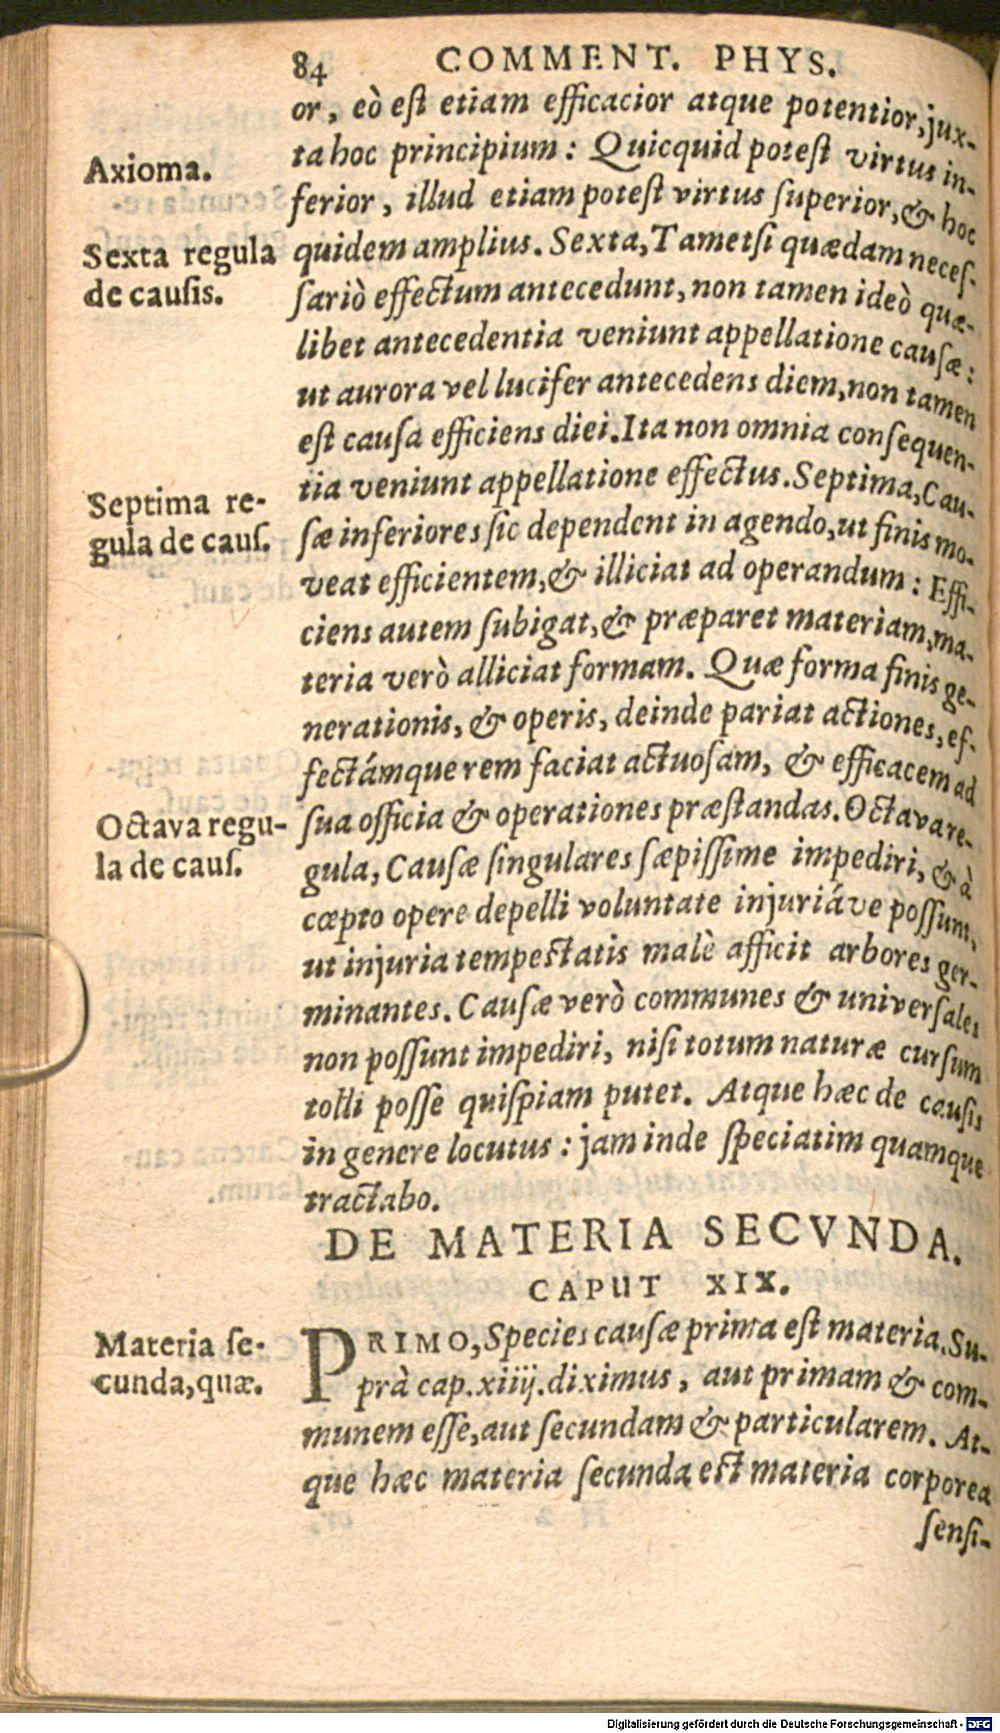 84 COMMENT. PHYS.
or, eò eſt etiam efficacior atque potentior, jux-
Axioma.
ta hoc principium: Quicquid poteſt virtus in-
ferior, illud etiam poteſt virtus ſuperior, & hoc
Sexta regula
de cauſis.
quidem amplius. Sexta, Tametſi quædam neceſ-
ſariò effectum antecedunt, non tamen ideò quæ-
libet antecedentia veniunt appellatione cauſæ:
ut aurora vel lucifer antecedens diem, non tamen
eſt cauſa efficiens diei. Ita non omnia conſequen-
Septima re-
gula de cauſ.
tia veniunt appellatione effectus. Septima, Cau-
ſæ inferiores ſic dependent in agendo, ut finis mo-
veat efficientem, & illiciat ad operandum: Effi-
ciens autem ſubigat, & præparet materiam, ma-
teria verò alliciat formam. Quæ forma finis ge-
nerationis, & operis, deinde pariat actiones, ef-
fectámque rem faciat actuoſam, & efficacem ad
Octava regu-
la de cauſ.
ſua officia & operationes præſtandas. Octava re-
gula, Cauſæ ſingulares ſæpiſſime impediri, & à
cœpto opere depelli voluntate injuriáve poſſunt,
ut injuria tempeſtatis malè afficit arbores ger-
minantes. Cauſæ verò communes & univerſales
non poſſunt impediri, niſi totum naturæ curſum
tolli poſſe quiſpiam putet. Atque hæc de cauſis
in genere locutus: jam inde ſpeciatim quamque
tractabo.
DE MATERIA SECVNDA.
CAPUT XIX.
Materia ſe-
cunda, quæ.
PRIMO, Species cauſæ prima eſt materia. Su-
prà cap. xiiij. diximus, aut primam & com-
munem eſſe, aut ſecundam & particularem. At-
que hæc materia ſecunda eſt materia corporea
ſenſi-
Digitalisierung gefördert durch die Deutsche Forschungsgemeinschaft - DFG